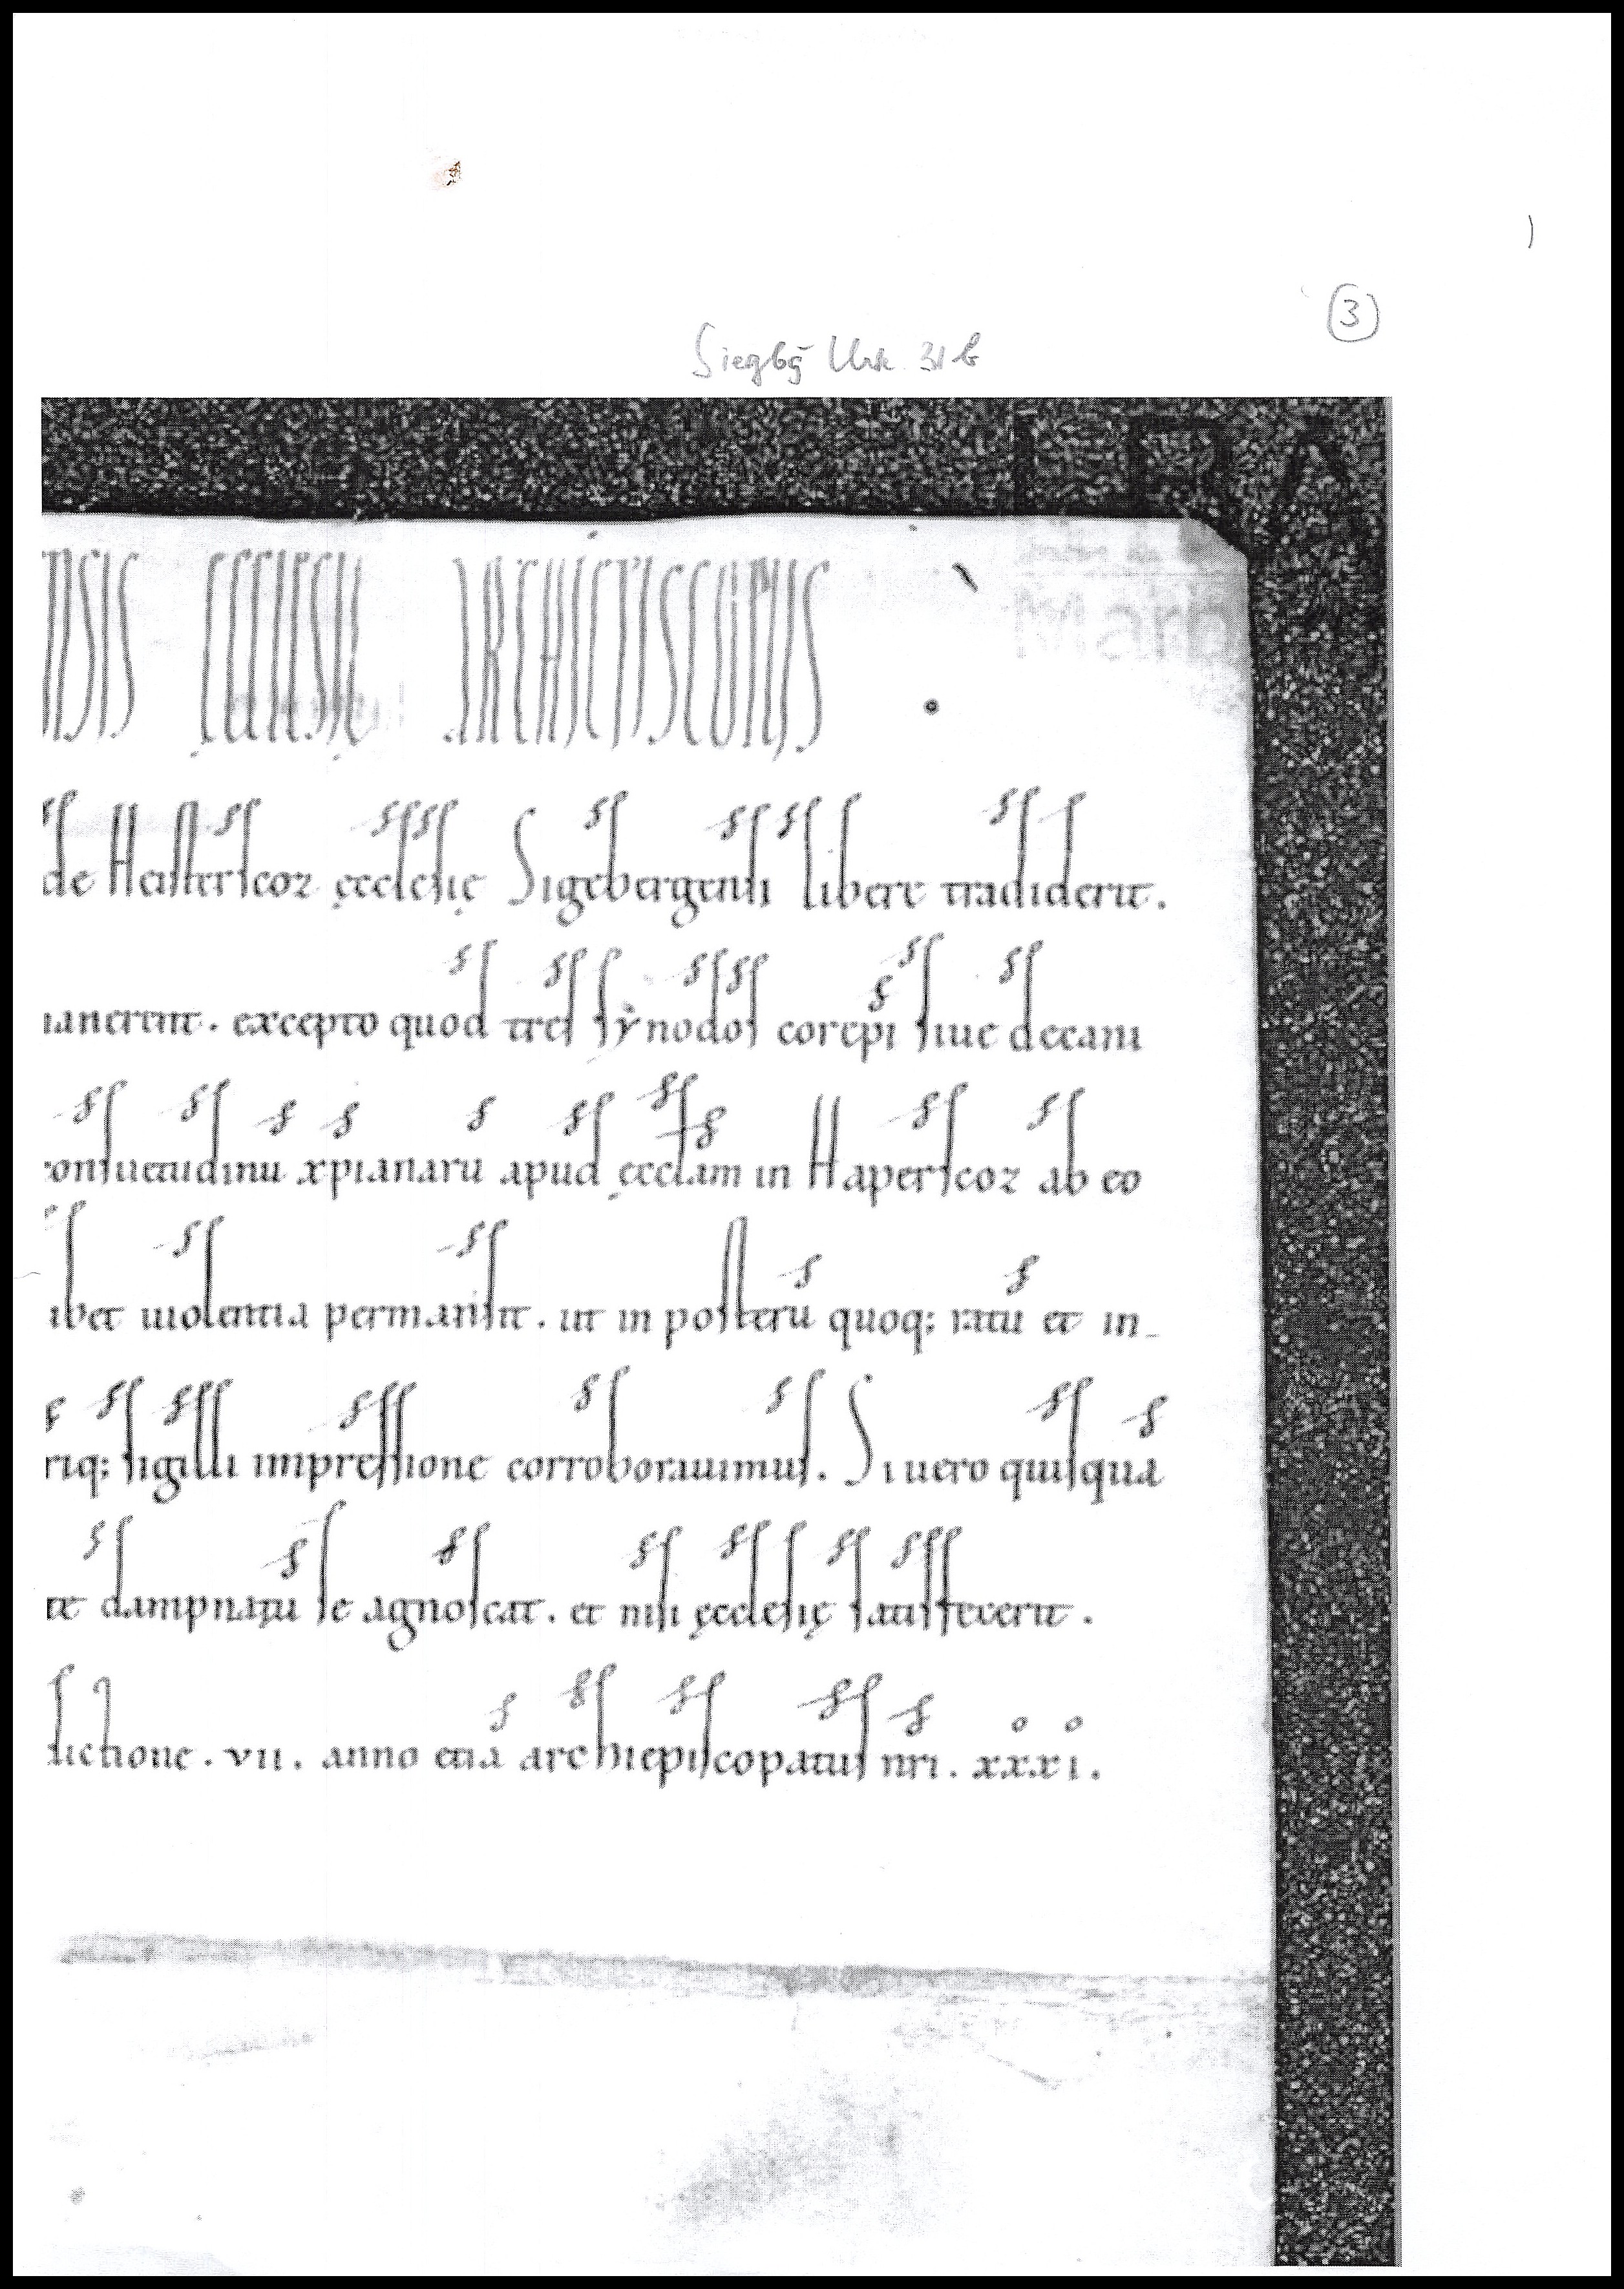 3
Siegbg Urk. 31 b
NSIS ĘCCLESIĘ ARCHIEPISCOPUS
de Heisterscoz ęcclesię Sigebergensi libere tradiderit.
anerent. excepto quod tres sẏnodos corepi siue decani
onsuetudinū xpianarū apud ęcclam in Haperscoz ab eo
ibet uiolentia permansit. ut in posterū quoq; ratū et in-
riq; sigilli impressione corroborauimus. Si uero quisquā
te dampnatū se agnoscat. et nisi ęcclesię satisfecerit.
dictione. vii. anno etiā archiepiscopatus nri. xxxi.